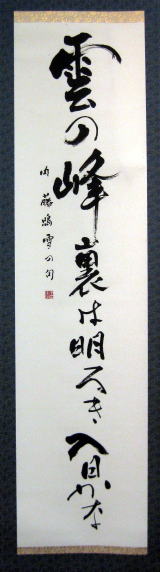 雲の峰裏は明るき入日かな
内藤鳴雪の句